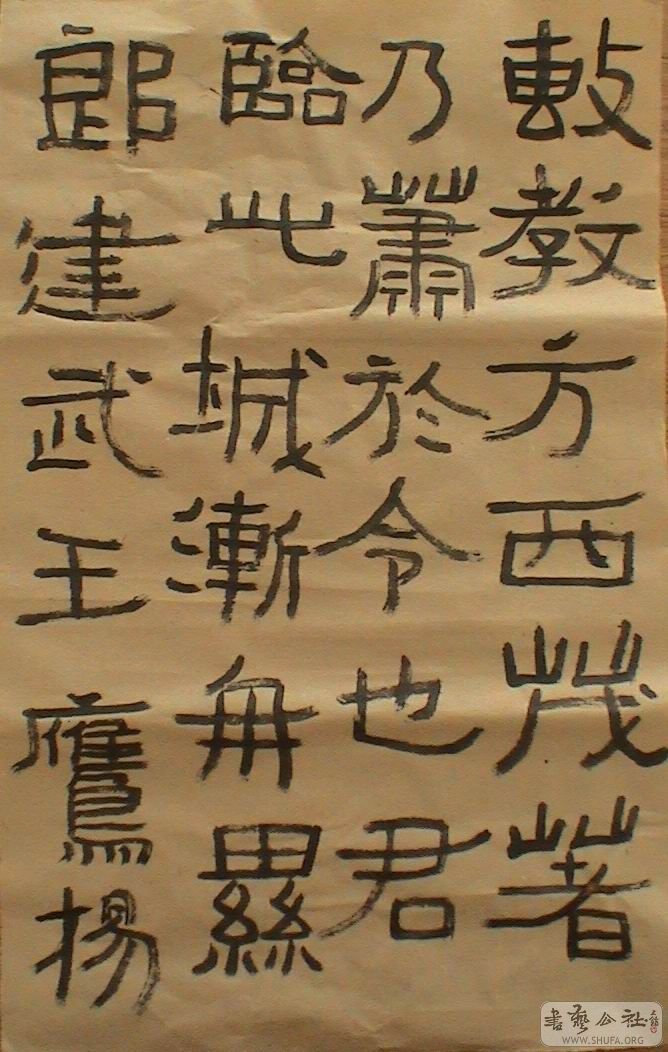 敷教方西茂著
乃蕭於令也君
臨此城漸累
郎建武王鷹揚
書藝公社
WWW.SHUFA.ORG